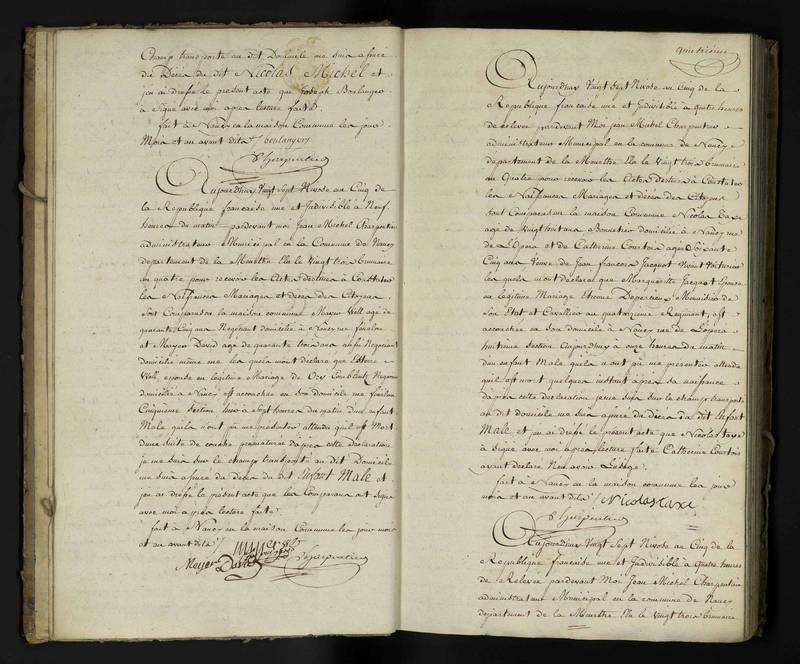 Champ transporté au dit Domicile me suis assuré
du Décès du dit Nicolas Michel et
j'ai dressé le présent acte que Joseph Boulanger
a signé avec moi après lecture faite
fait à Nancy en la maison Commune les jour
Mois et an avant dits / boulanger
Charpentier
Aujourdhuy Vingt Sept Nivose au Cinq de
la République francaise une et Indivisible à Neuf
heures du matin pardevant moi jean Michel Charpentier
administrateur Municipal en la Commune de Nancy
departement de la Meurthe Elu le Vingt trois brumaire
an quatre pour recevoir les Actes destinés à Constater
les Naissances Mariages et décès des Citoyens
sont Comparus en la maison commune Mayer Well agé de
quarante Cinq ans Négotiant domicilié à Nancy rue
et Meyer David agé de quarante trois ans aussi Négotiant
domicilié même rue les quels m'ont déclaré que
Well, épouse en légitime Mariage de
domicilié à Nancy est accouchée en son domicile rue
Cinquieme Section à Sept heures du matin d'un enfant
Male qu'ils n'ont pu me présenter attendu qu'il est Mort
d'une suite de couche prématurée d'après cette déclaration
je me suis sur le champ transporté au dit Domicile
me suis assuré du décès du dit Enfant Male et
j'ai dressé le présent acte que les Comparans ont signé
avec moi après lecture faite
fait à Nancy en la maison Commune les jour mois
et an avant dits /
Meyer David Charpentier
quinzieme
Aujourdhuy Vingt Sept Nivose au Cinq de la
République francaise une et Indivisible à Quatre heures
de relevée pardevant Moi jean Michel Charpentier
administrateur Municipal en la commune de Nancy
departement de la Meurthe Elu le Vingt trois brumaire
an Quatre pour recevoir les Actes destinés à Constater
les Naissances Mariages et décès des Citoyens
sont Comparus en la maison Commune Nicolas Taxe
agé de Vingt huit ans Bonnetier domicilié à Nancy rue
de L'Opera et de Catherine Courtois agée Soixante
Cinq ans Veuve de Jean francois Jacquot Vivant Voiturier
les quels m'ont déclaré que Marguerite Jacquot Epouse
en légitime Mariage Etienne Menuisier de
son Etat et Cavallier au quatorzieme Regiment, est
accouchée en son domicile à Nancy rue de L'Opera
huitième Section Aujourdhuy à onze heures du matin
d'un enfant Male, qu'ils n'ont pu me presenter attendu
qu'il est mort quelques instant après sa naissance
d'après cette déclaration je me suis sur le champ transporté
au dit domicile me suis assuré du décès du dit Enfant
Male et j'ai dressé le présent acte que Nicolas taxe
a signé avec moi après lecture faite Catherine Courtois
ayant déclaré N'en avoir L'usage.
fait à Nancy en la maison commune les jour
mois et an avant dits / Nicolas taxe
Charpentier
Aujourdhuy Vingt Sept Nivose au Cinq de la
République francaise une et Indivisible à Quatre heures
de Relevée pardevant Moi Jean Michel Charpentier
administrateur Municipal en la commune de Nancy
département de la Meurthe Elu le Vingt trois brumaire